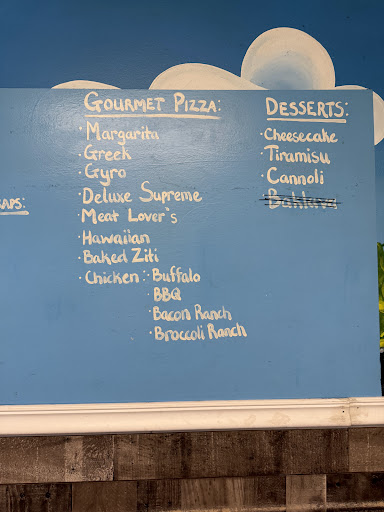 GOURMET PIZZA:
· Margarita
· Greek
· Gyro
· Deluxe Supreme
· Meat Lover's
· Hawaiian
· Baked Ziti
· Chicken: · Buffalo
· BBQ
· Bacon Ranch
· Broccoli Ranch
DESSERTS:
· Cheesecake
· Tiramisu
· Cannoli
· Baklava